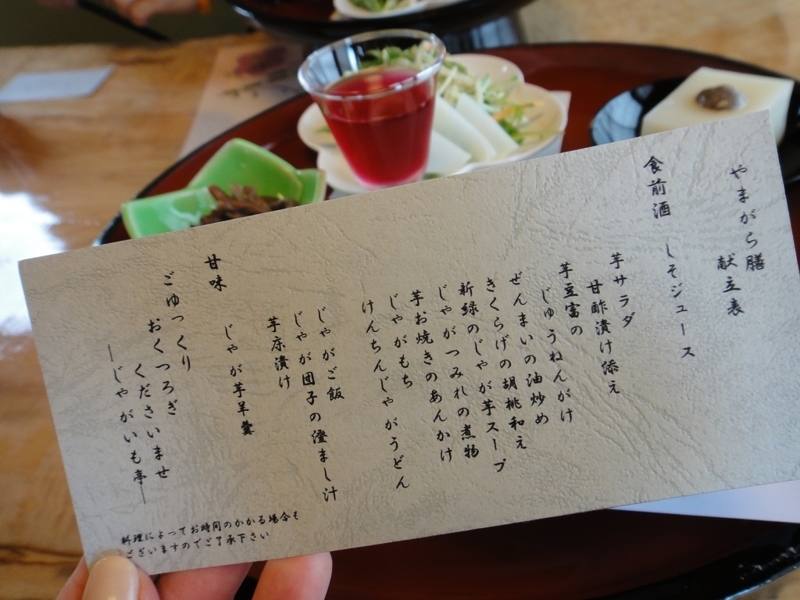 やまがら膳
献立表
食前酒 しそジュース
芋サラダ
甘酢漬け添え
芋豆富の
じゅうねんがけ
ぜんまいの油炒め
きくらげの胡桃和え
新緑のじゃが芋スープ
じゃがつみれの煮物
芋お焼きのあんかけ
じゃがもち
けんちんじゃがうどん
じゃがご飯
じゃが団子の澄まし汁
芋床漬け
甘味 じゃが芋羊羹
ごゆっくり
おくつろぎ
くださいませ
―じゃがいも亭―
料理によってお時間のかかる場合も
ございますのでご了承下さい